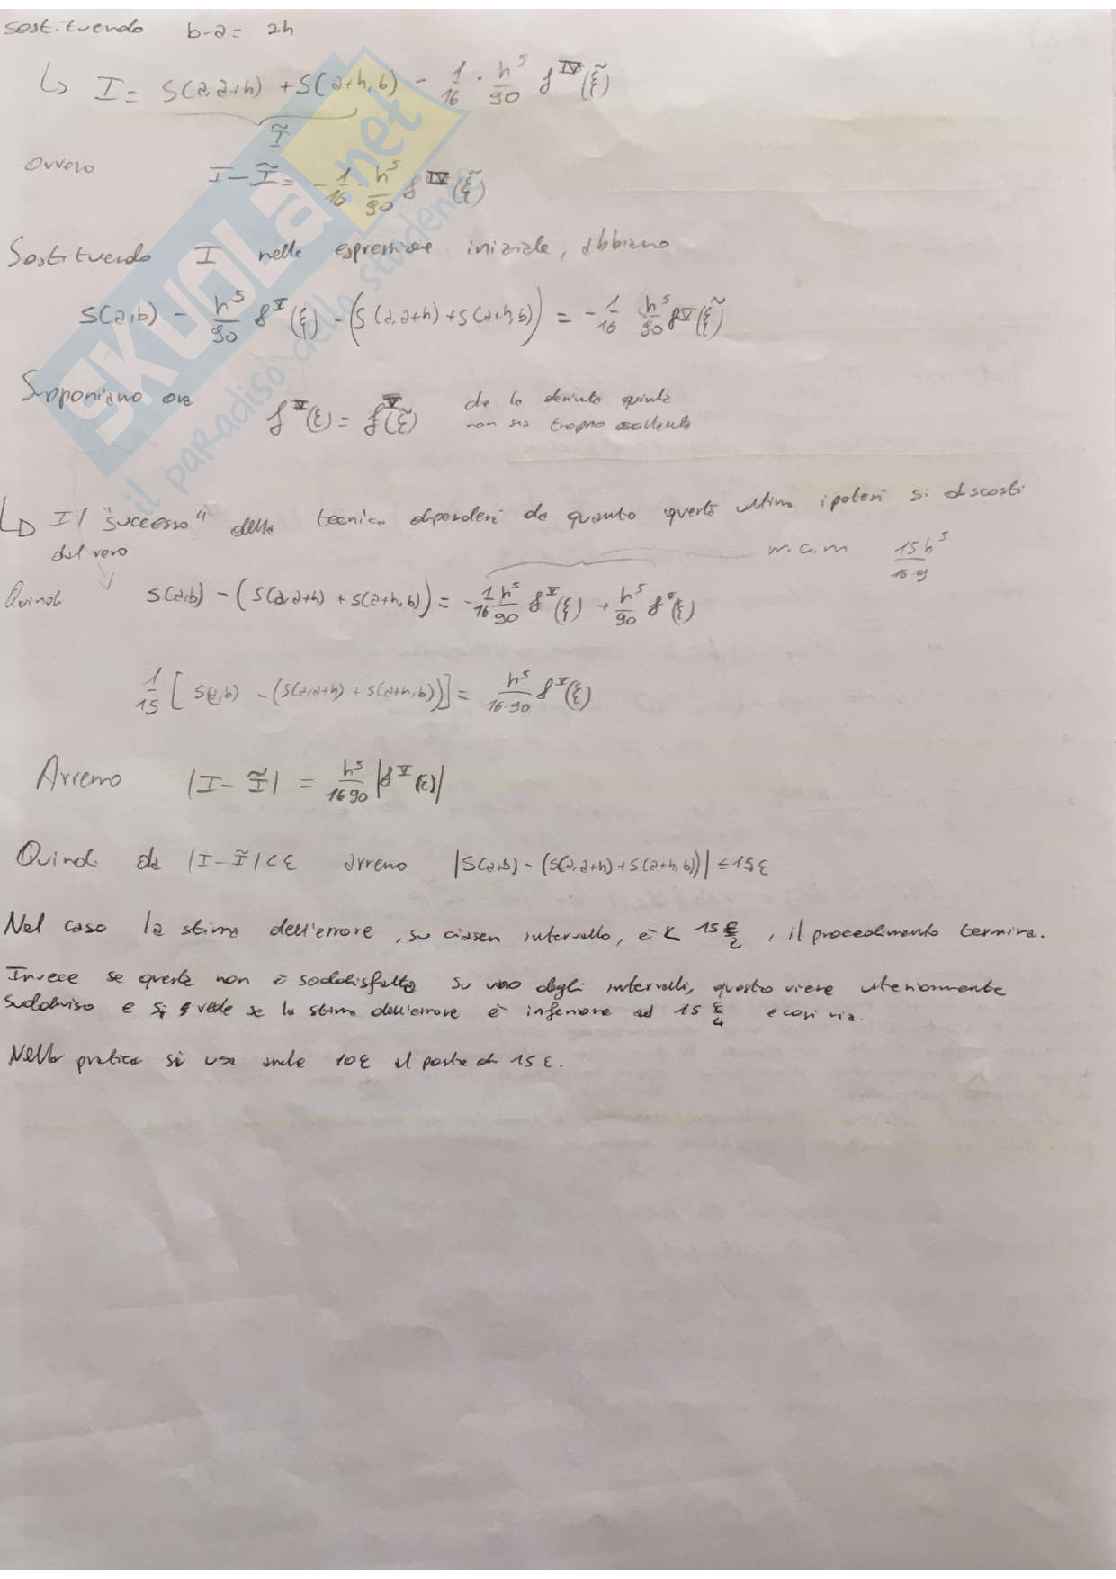 Sostituendo b-a = 2h
↳ I = S(a,a+h) + S(a+h,b) - 1/16 · h^5/90 f^IV(ξ̃)
Ĩ
ovvero I - Ĩ = - 1/16 · h^5/90 f^IV(ξ̃)
Sostituendo I nella espressione iniziale, abbiamo
S(a,b) - h^5/90 f^V(ξ) - (S(a,a+h) + S(a+h,b)) = - 1/16 h^5/90 f^V(ξ̃)
Supponiamo ora f^V(ξ) = f^V(ξ̃) che la derivata quinta
non sia troppo oscillante
↳ Il "successo" della tecnica dipenderà da quanto questa ultima ipotesi si discosti
dal vero m.c.m 15h^5/16·9
Quindi S(a,b) - (S(a,a+h) + S(a+h,b)) = - 1/16 h^5/90 f^V(ξ) + h^5/90 f^V(ξ)
1/15 [S(a,b) - (S(a,a+h) + S(a+h,b))] = h^5/16·90 f^V(ξ)
Avremo |I - Ĩ| = h^5/16 90 |f^V(ξ)|
Quindi da |I - Ĩ| < ε avremo |S(a,b) - (S(a,a+h) + S(a+h,b))| ≤ 15 ε
Nel caso la stima dell'errore, su ciascun intervallo, è < 15 ε/2, il procedimento termina.
Invece se questa non è soddisfatta su uno degli intervalli, questo viene ulteriormente
suddiviso e si vede se la stima dell'errore è inferiore ad 15 ε/4 e così via.
Nella pratica si usa anche 10ε al posto di 15 ε.
SKUOLA.net
il paradiso dello studente